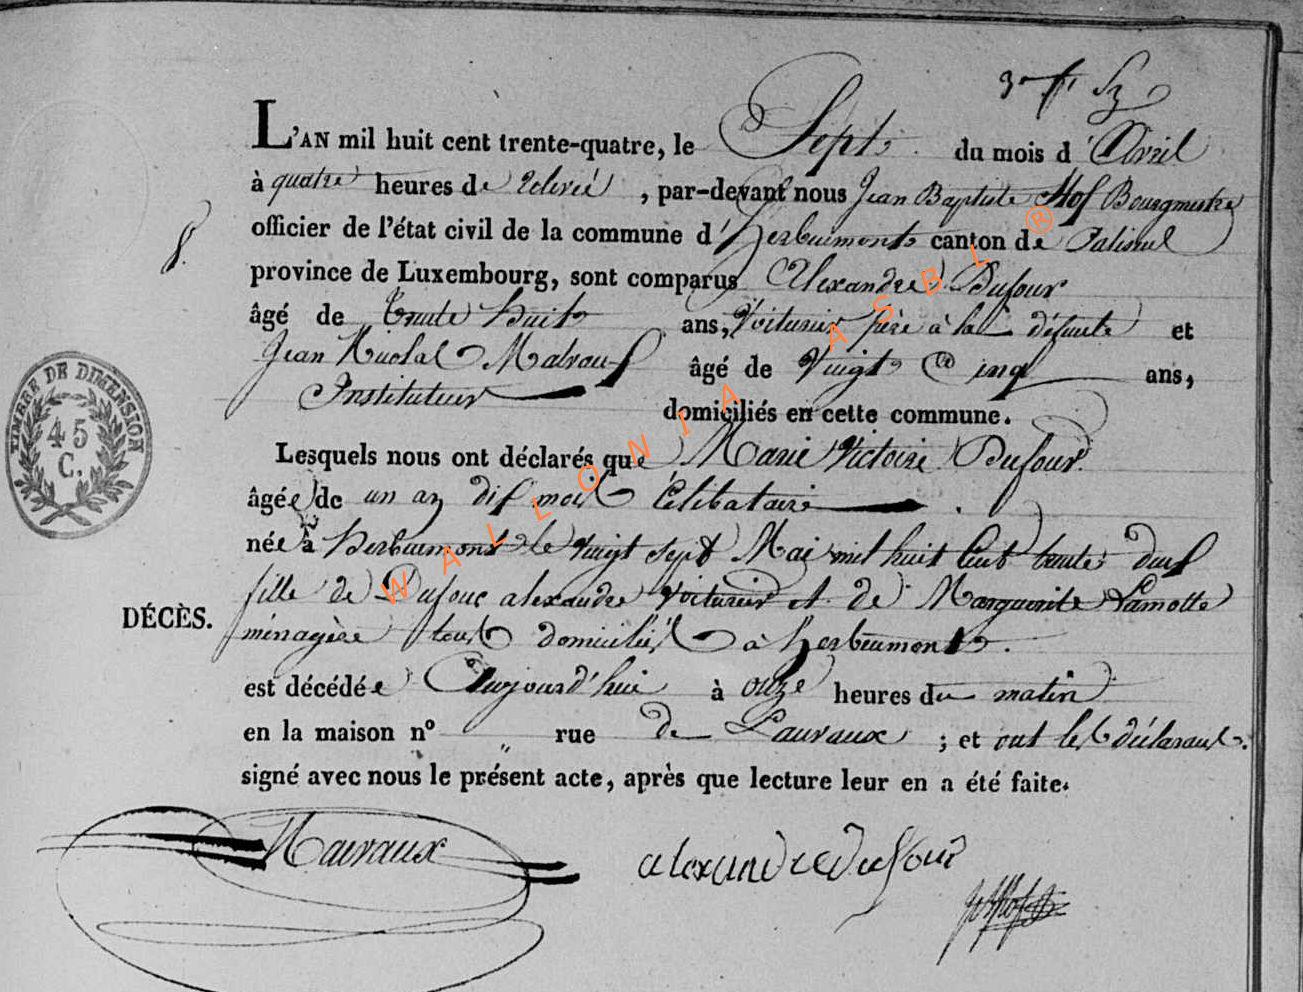 L'AN mil huit cent trente-quatre, le Sept du mois d'Avril
à quatre heures de relevé, par-devant nous Jean Baptiste Hof Bourgmestre
officier de l'état civil de la commune d'herbeumont canton de Paliseul
8.
province de Luxembourg, sont comparus Alexandre Dufour
âgé de trente huit ans, Voiturier père à la défunte et
Jean Nicolas âgé de vingt Cinq ans,
Instituteur domiciliés en cette commune.
TIMBRE DE DIMENSION
45
C.
Lesquels nous ont déclarés que Marie Victoire Dufour
âgée de un an dix mois Célibataire.
née à herbeumont le vingt sept Mai mil huit Cent trente deux
fille de Dufour alexandre Voiturier et de Marguerite Lamotte
DÉCÈS.
ménagère tous domiciliés à herbeumont.
est décédée Aujourd'hui à onze heures du matin
en la maison n° " rue de Lauvaux; et ont les déclarans.
signé avec nous le présent acte, après que lecture leur en a été faite.
alexandre dufour
WALLONIA ASBL ®